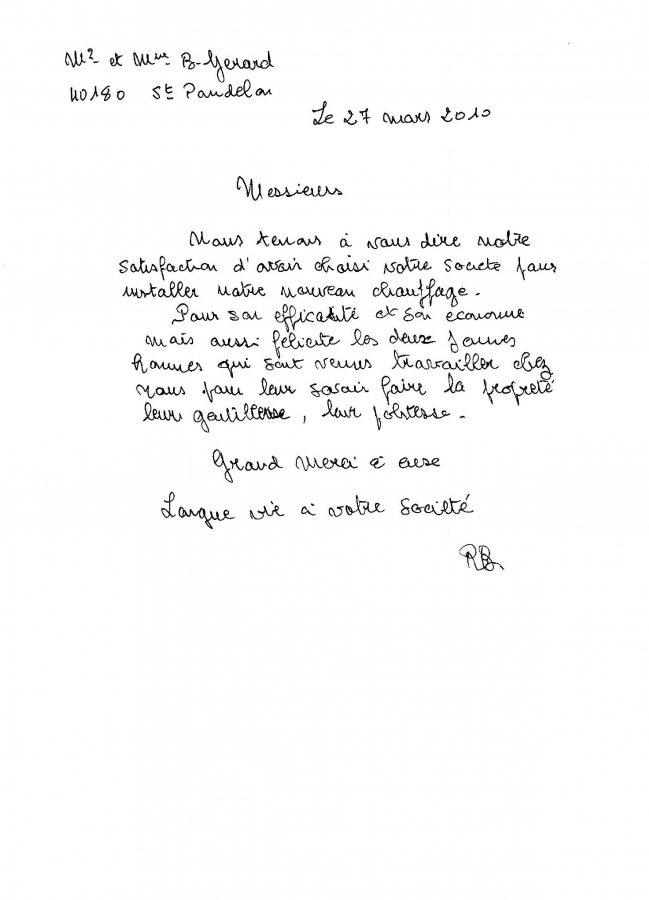 Mr et Mme B-Gerard
40180 St Pandelon
Le 27 mars 2010
Messieurs
Nous tenons à vous dire notre
satisfaction d'avoir choisi votre societé pour
installer notre nouveau chauffage.
Pour son efficacité et son économie
mais aussi félicite les deux jeunes
hommes qui sont venus travailler chez
nous pour leur savoir faire la propreté
leur gentillesse, leur politesse.
Grand merci à eux
Longue vie à votre Société
RB